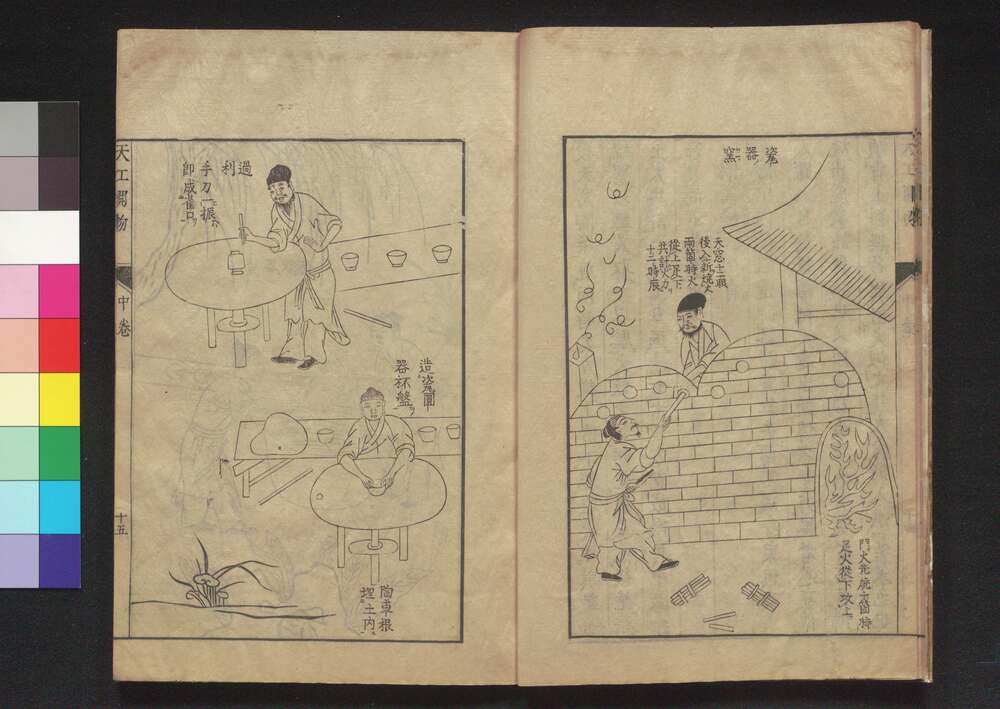 瓷器窯
天窓十二眼
後入新燒火
兩箇時火
從上足下
共計火力
十二時辰
門大先燒十箇時
足火從下攻上
過利
手刀一振
卽成雀口
造瓷圓
器杯盤
陶車根
埋土内
天工開物
中卷
十五